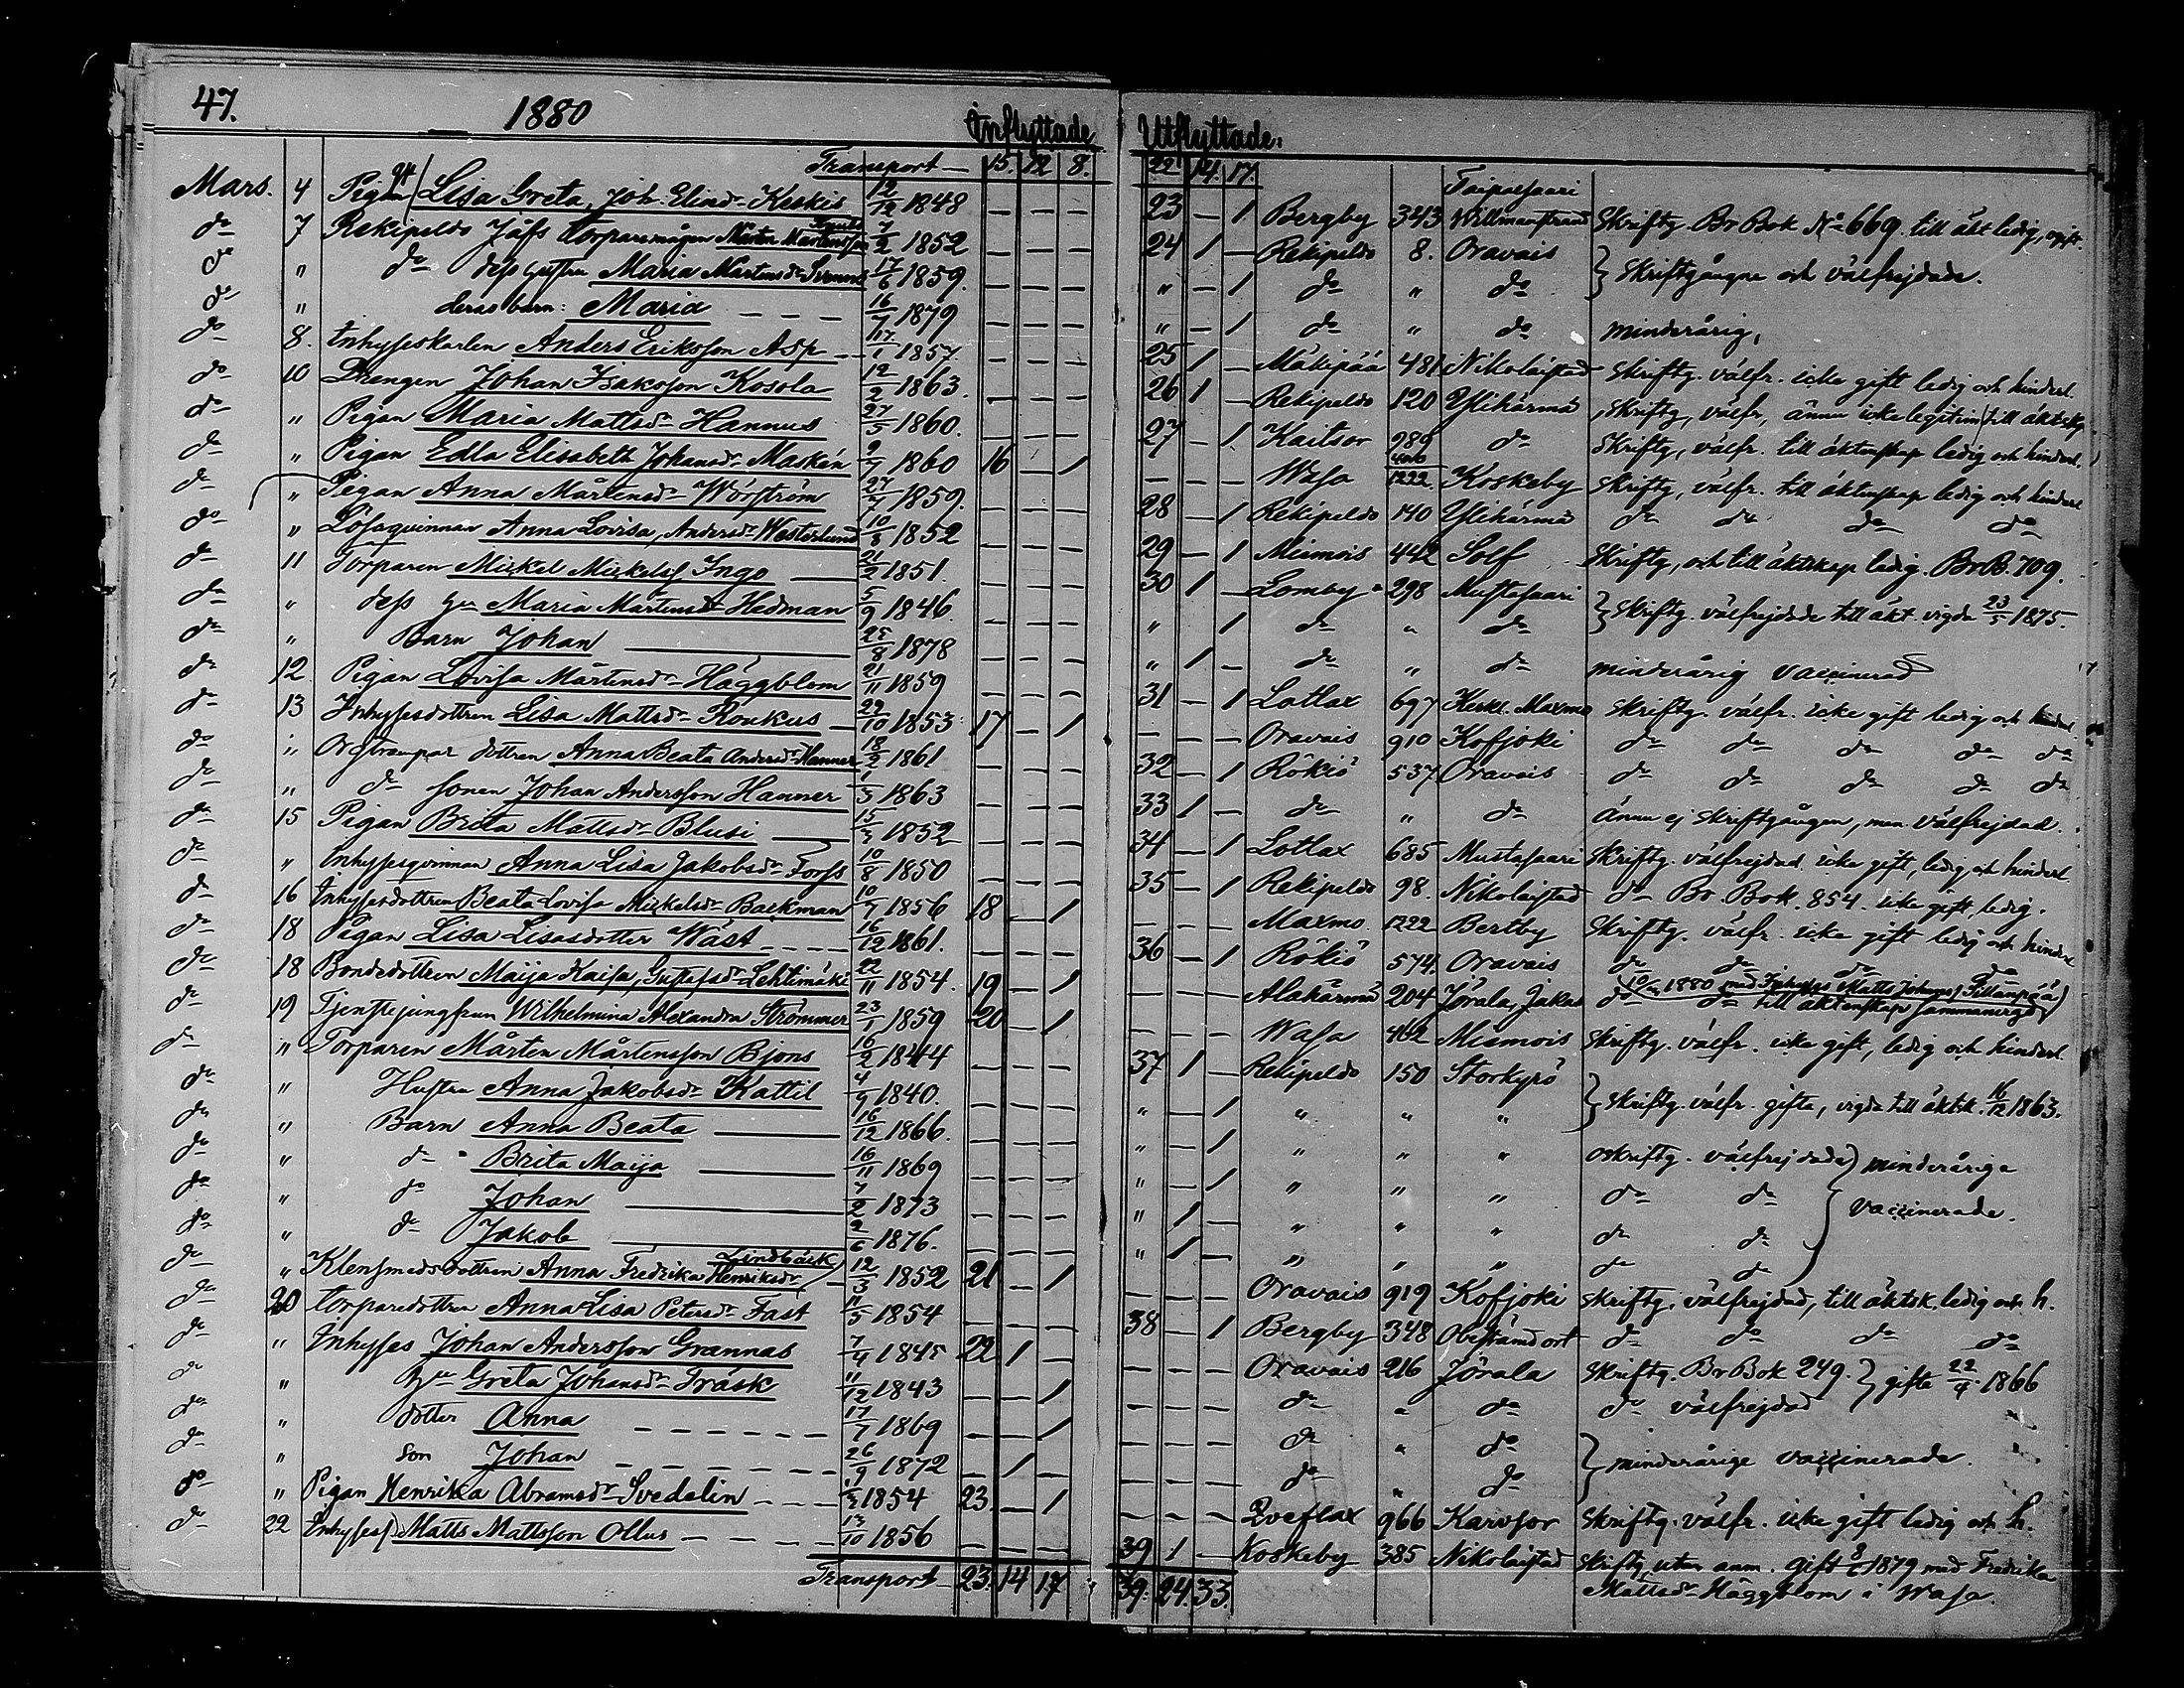 47. 1880 Inflyttade Utflyttade.
Transport — 15. 12 8. 22 14. 17.
Mars. 4 Pigan Lisa Greta, Joh. Elind. Keskis 12/12 1848 — — — 23 — 1 Bergby 343 Taipalsaari Willmanstrand Skriftg. Br Bok No 669. till äkt ledig, ogift.
do 7 Rekipeldo Jåfs torparemågen Mårten Mårtensson 7/2 1852 — — — 24 1 — Rekipeldo 8. Oravais } Skriftgångne och välfrejdade.
do " do dess hustru Maria Mårtensdr Svenns 17/6 1859. — — — " — 1 do " do
do " deras barn: Maria — — — 16/7 1879 — — — " — 1 do " do minderårig,
do 8. Inhyseskarlen Anders Eriksson Asp — — 17/1 1857. — — — 25 1 — Mäkipää 481 Nikolaistad Skriftg. välfr. icke gift ledig och hinderl.
do 10 Drengen Johan Isaksson Kosola 12/2 1863. — — — 26 1 — Rekipeldo 120 Ylihärmä Skriftg, välfr, ännu icke legitim till äktskp
do " Pigan Maria Mattsdr Hannus 27/5 1860. — — — 27 — 1 Kaitsor 989 do Skriftg, välfr. till äktenskap ledig och hinderl.
do " Pigan Edla Elisabeth Johansdr Maskén 9/7 1860 16 — 1 — — — Wasa 1222. Koskeby Skriftg, välfr. till äktenskap ledig och hinderl
do " Pigan Anna Mårtensdr Wörström 27/7 1859. — — — 28 — 1 Rekipeldo 140 Ylihärmä do do do do
do " Lösaqvinnan Anna Lovisa, Andersdr Westerlund 10/8 1852 — — — 29 — 1 Miemois 442 Solf Skriftg, och till äktskap ledig. Br B. 709.
do 11 Torparen Mickel Mickelss Ingo — 21/2 1851. — — — 30 1 — Lomby 298 Mustasaari } Skriftg. välfrejdade till äkt. vigda 23/5 1875.
do " dess hu Maria Mårtensdr Hedman 5/9 1846. — — — " 1 do " do
do " Barn Johan — 25/8 1878 — — — " 1 — do " do minderårig vaccinerad
do 12. Pigan Lovisa Mårtensdr Häggblom 21/11 1859 — — — 31 — 1 Lotlax 697 Kerkl. Maxmo Skriftg. välfr. icke gift ledig och hinderl.
do 13 Inhysesdottren Lisa Mattsdr Roukus — 29/10 1853 17 — 1 — — — Oravais 910 Kofjoki do do do do do
do " Orgtrampar dottren Anna Beata Andersdr Hanner 18/2 1861 — — — 32 — 1 Rökiö 537 Oravais do do do do do
do " do sonen Johan Andersson Hanner 1/5 1863 — — — 33 1 — do " do Ännu ej skriftgången, men välfrejdad.
do 15 Pigan Brita Mattsdr Blusi — 15/3 1852 — — — 34 — 1 Lotlax 685 Mustasaari Skriftg. välfrejdad icke gift, ledig och hinderl
do " Inhysesqvinnan Anna Lisa Jakobsdr Forss 10/8 1850 — — — 35 — 1 Rekipeldo 98. Nikolaistad do Br. Bok. 854. icke gift, ledig.
do 16 Inhysesdottren Beata Lovisa Mickelsdr Backman 10/7 1856 18 — 1 — — — Maxmo 1222 Bertby Skriftg. välfr. icke gift ledig och hinderl
do 18 Pigan Lisa Lisasdotter Wäst — — — 16/12 1861. — — — 36 — 1 Rökiö 574. Oravais do do do do
do 18 Bondedottren Maija Kaisa, Gustafsdr Lehtimäki 22/11 1854. 19 — 1 — — — Alahärmä 204 Jörala, Jakas do do till äktenskap sammanvigd
do 19 Tjenstejungfrun Wilhelmina Alexandra Strömmer 23/1 1859 20 — 1 — — — Wasa 462 Miemois Skriftg. välfr. icke gift, ledig och hinderl.
do " Torparen Mårten Mårtensson Bjons 16/2 1844 — — — 37 1 — Rekipeldo 150 Storkyrö } Skriftg. välfr. gifta, vigda till äktsk. 16/12 1863.
do " Hustru Anna Jakobsdr Kattil 4/9 1840. — — — " — 1 " " "
do " Barn Anna Beata — 16/12 1866. — — — " — 1 " " " oskriftg. välfrejdade } minderåriga
do " do Brita Maija — 16/11 1869 — — — " — 1 " " " do do
do " do Johan — 7/2 1873 — — — " 1 — " " " do do vaccinerade.
do " do Jakob — 2/6 1876. — — — " 1 — " " " do do
do " Klensmedsdottren Anna Fredrika Henriksdr Lindbäck — 12/3 1852 21 — 1 — — — Oravais 919 Kofjoki Skriftg. välfrejdad, till äktsk. ledig och h.
do 20 torparedottren Anna Lisa Petersdr Fast 11/5 1854 — — — 38 — 1 Bergby 348 Obestämd ort do do do do
do " Inhyses Johan Andersson Grannas 7/4 1845 22 1 — — — — Oravais 216 Jörala Skriftg. Br Bok 249. } gifta 22/4 1866
do " hu Greta Johansdr Träsk 11/12 1843 — — 1 — — — do " do do välfrejdad
do " dotter Anna — — — 17/7 1869 — — 1 — — — do " do } minderårige vaccinerade.
do " Son Johan — — — 26/9 1872 — 1 — — — — do " do
do " Pigan Henrika Abramsdr Svedelin — — — 1854 23. — 1 — — — Qveflax 966 Karvsor Skriftg. välfr. icke gift ledig och h.
do 22 Inhyses Matts Mattsson Ollus — — — 13/10 1856 — — — 39 1 — Koskeby 385 Nikolaistad Skriftg, utan anm. Gift 8/6 1879 med Fredrika
Mattsdr Häggblom i Wasa.
Transport — 23. 14 17 39. 24. 33.